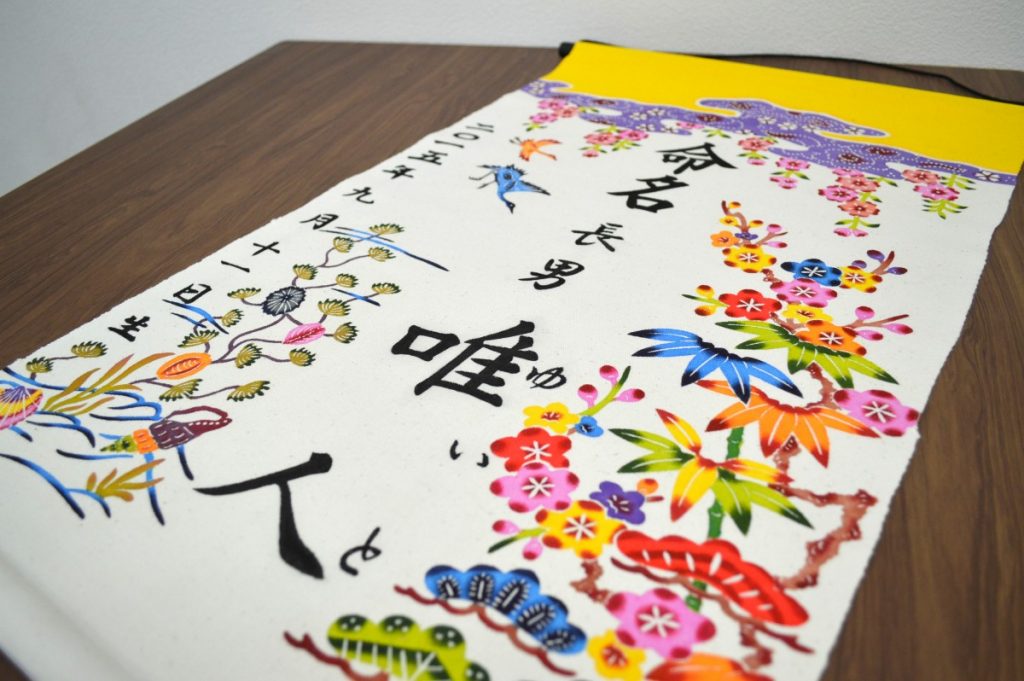 命名
長男
唯人
ゆいと
二〇一五年九月十一日生